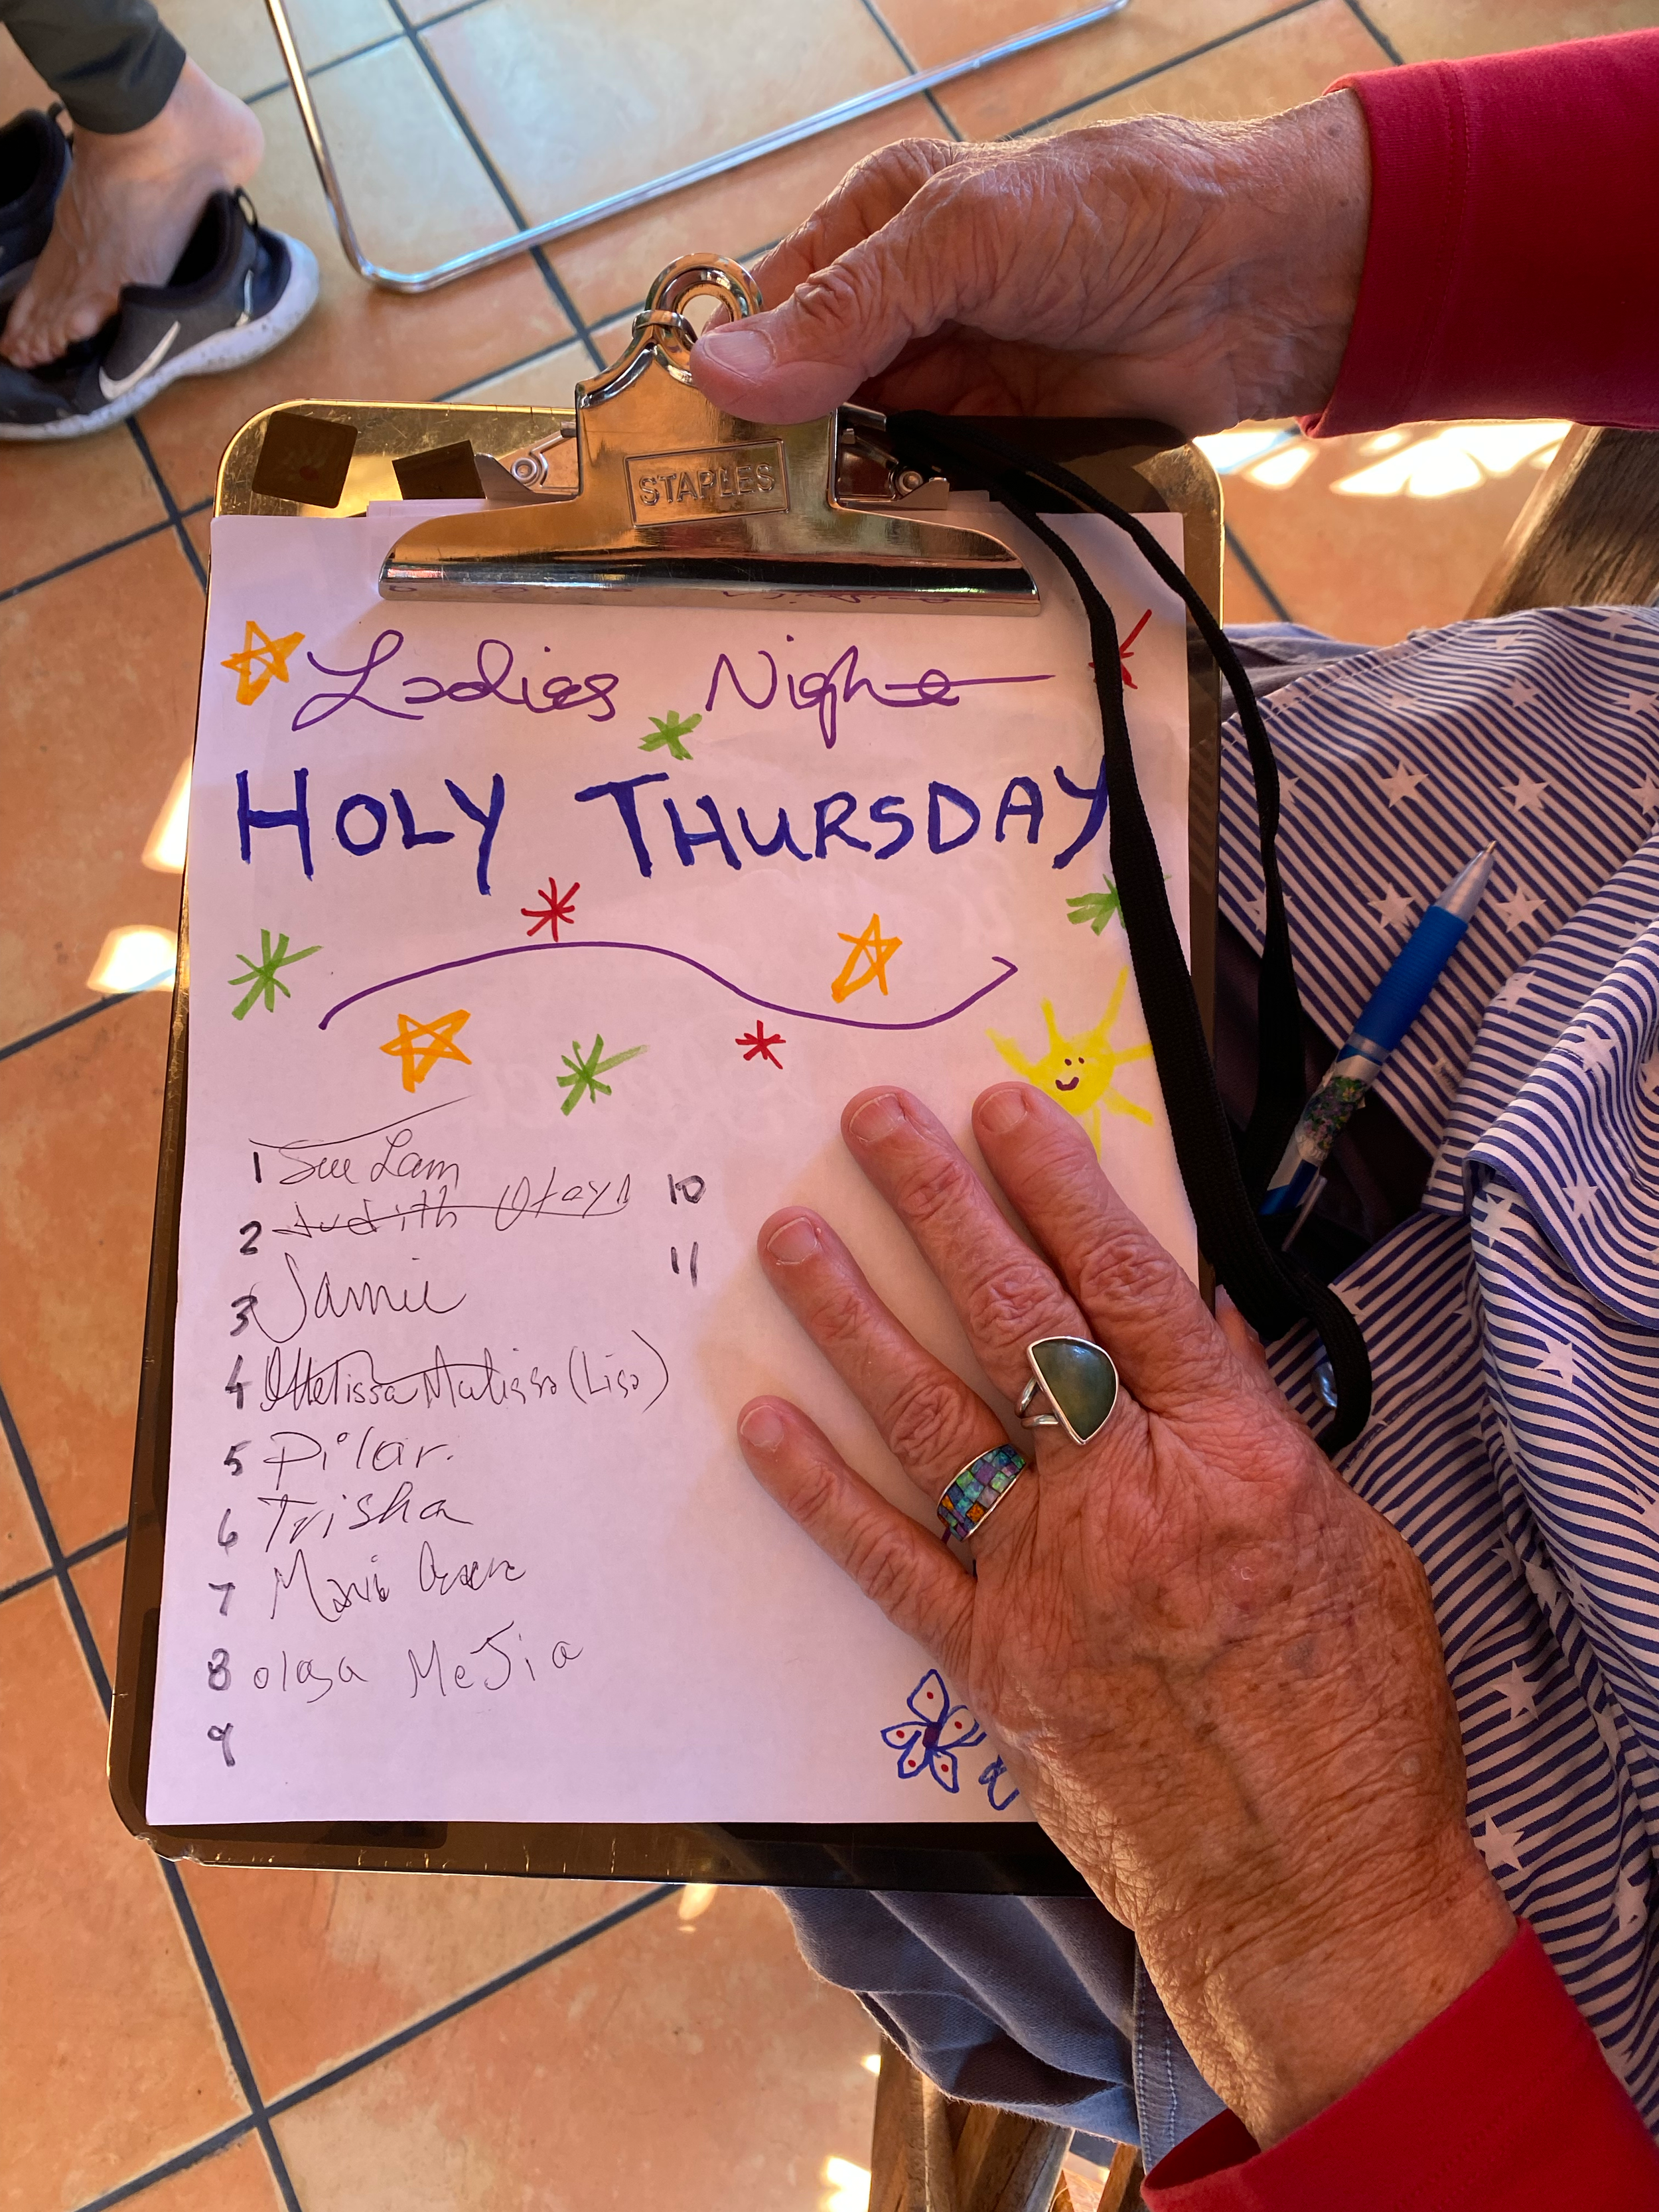 STAPLES
Ladies Night
HOLY THURSDAY
1 Sue Lam
2 Judith
3 Jamie
4 Melissa Melissa (Lisa)
5 Pilar.
6 Trisha
7
8 olga MeJia
9
10
11